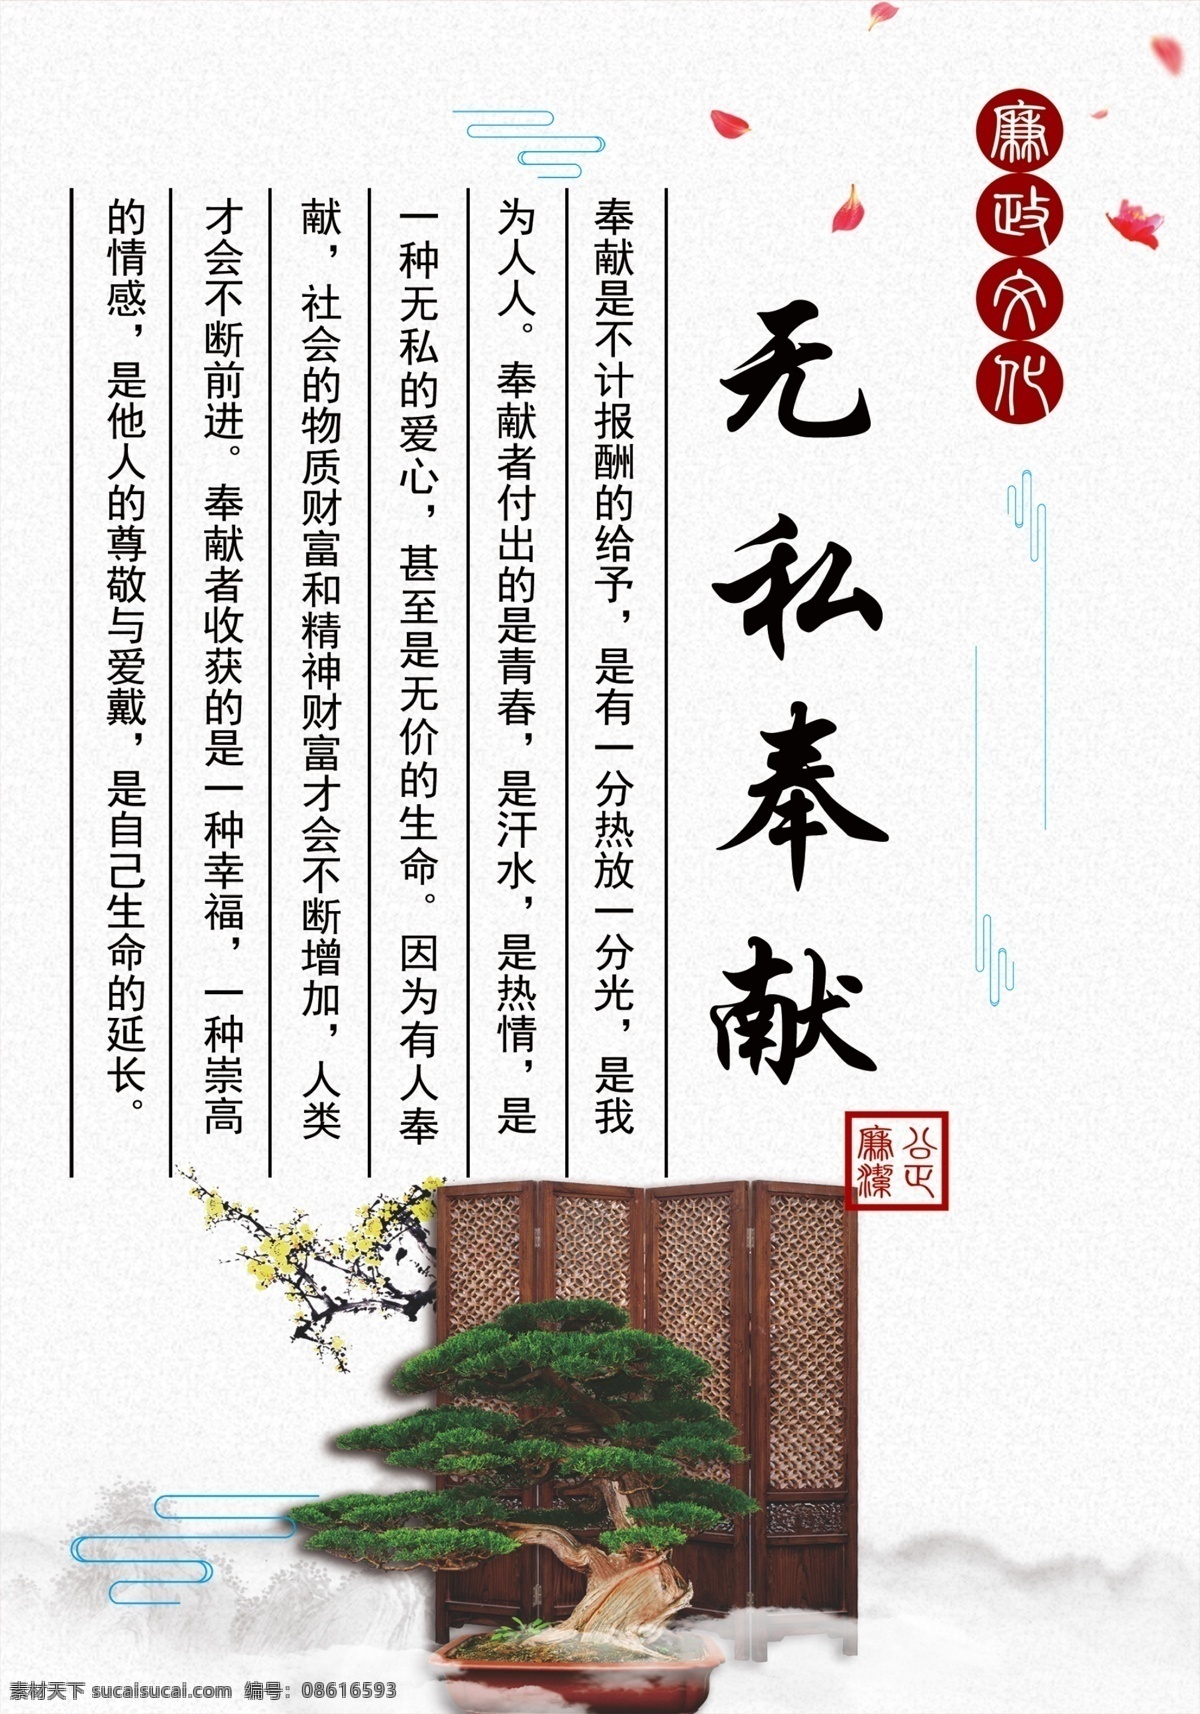 廉政文化
无私奉献
公正
廉潔
奉献是不计报酬的给予，是有一分热放一分光，是我
为人人。奉献者付出的是青春，是汗水，是热情，是
一种无私的爱心，甚至是无价的生命。因为有人奉
献，社会的物质财富和精神财富才会不断增加，人类
才会不断前进。奉献者收获的是一种幸福，一种崇高
的情感，是他人的尊敬与爱戴，是自己生命的延长。
素材天下 sucaisucai.com 编号：08616593